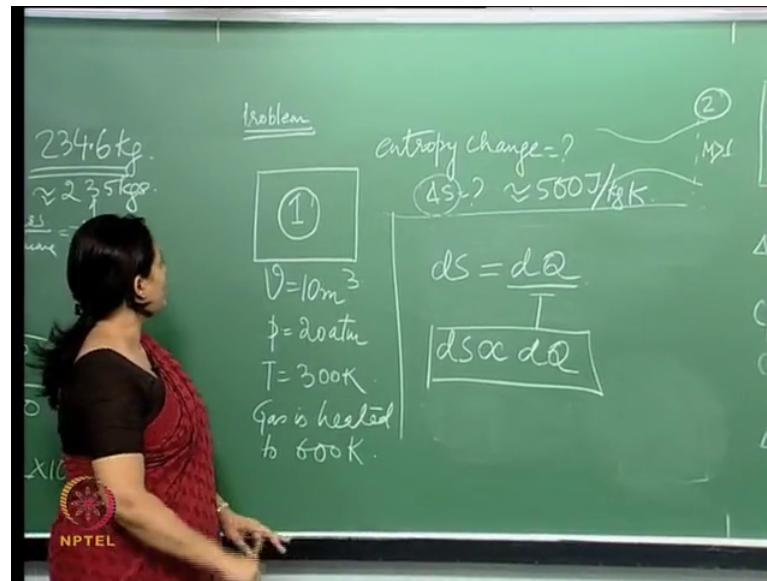 234.6 kg.
≈ 235 kgs.
Problem
1
V = 10 m³
p = 20 atm
T = 300K.
Gas is heated
to 600 K.
entropy change = ?
ΔS = ? ≈ 500 J/kg K.
dS = dQ/T
dS ∝ dQ
2
M>1
X10
NPTEL